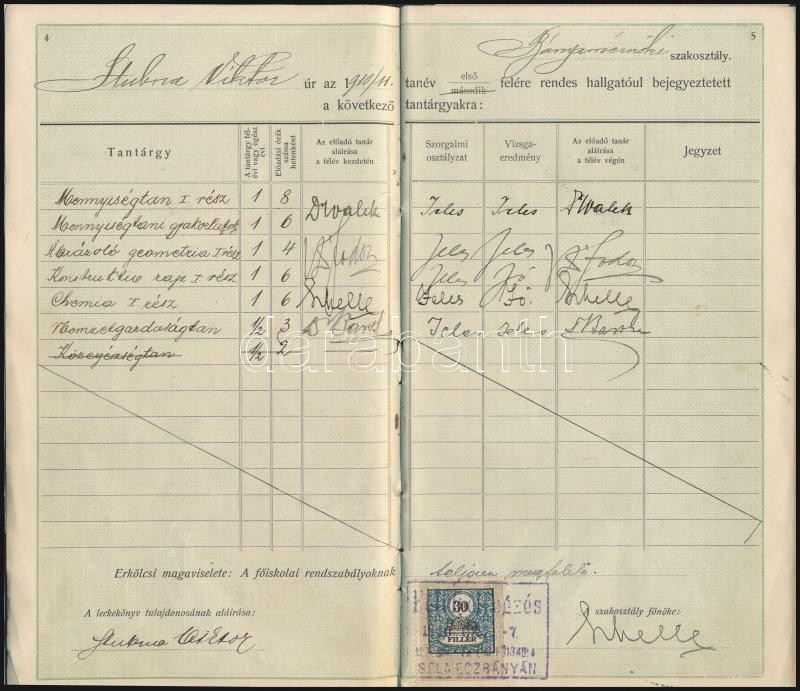 4
5
Stubna Viktor úr az 1910/11. tanév első második felére rendes hallgatóul bejegyeztetett
Bányamérnöki szakosztály.
a következő tantárgyakra:
Tantárgy
A tantárgy fél-
évi vagy egész
évi
Előadási órák
száma
hetenként
Az előadó tanár
aláírása
a félév kezdetén
Szorgalmi
osztályzat
Vizsga-
eredmény
Az előadó tanár
aláírása
a félév végén
Jegyzet
Mennyiségtan I. rész 1 8 Dr Walek Jeles Jeles Dr Walek
Mennyiségtani gyakorlatok 1 6
Ábrázoló geometria I rész 1 4 Fodor Jeles Jeles Fodor
Konstruktiv rajz I. rész 1 6 Jeles Jó
Chemia I. rész 1 6 Schelle Jeles Jó. Schelle
Nemzetgazdaságtan 1/2 3 Jeles Jeles
Közegészségtan 1/2 2
darabanth
Erkölcsi magaviselete: A főiskolai rendszabályoknak teljesen megfelelő.
A leckekönyv tulajdonosának aláírása:
Stubna Viktor
A szakosztály főnöke:
Schelle
30
FILLÉR
SELMECZBÁNYÁN